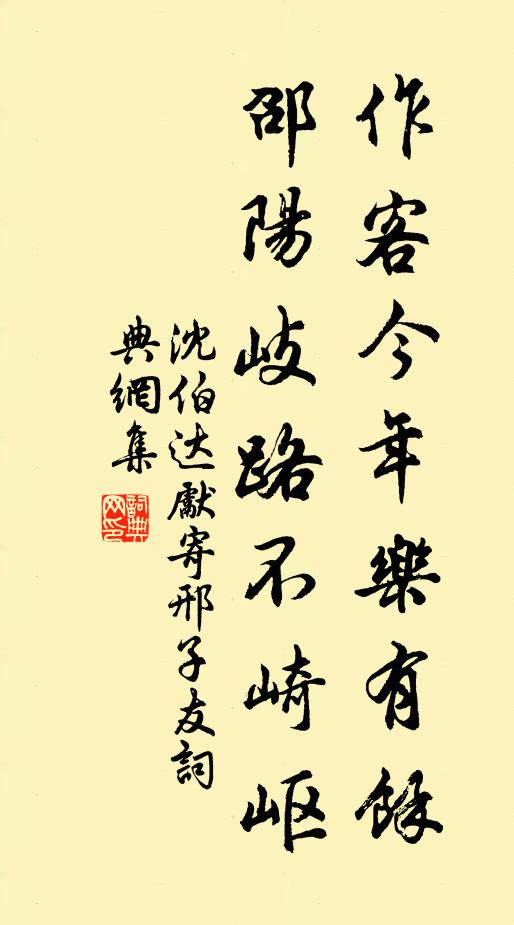 作客今年樂有餘
邵陽岐路不崎岖
沈伯达獻寄邢子友詞
典網集
詞典
网印